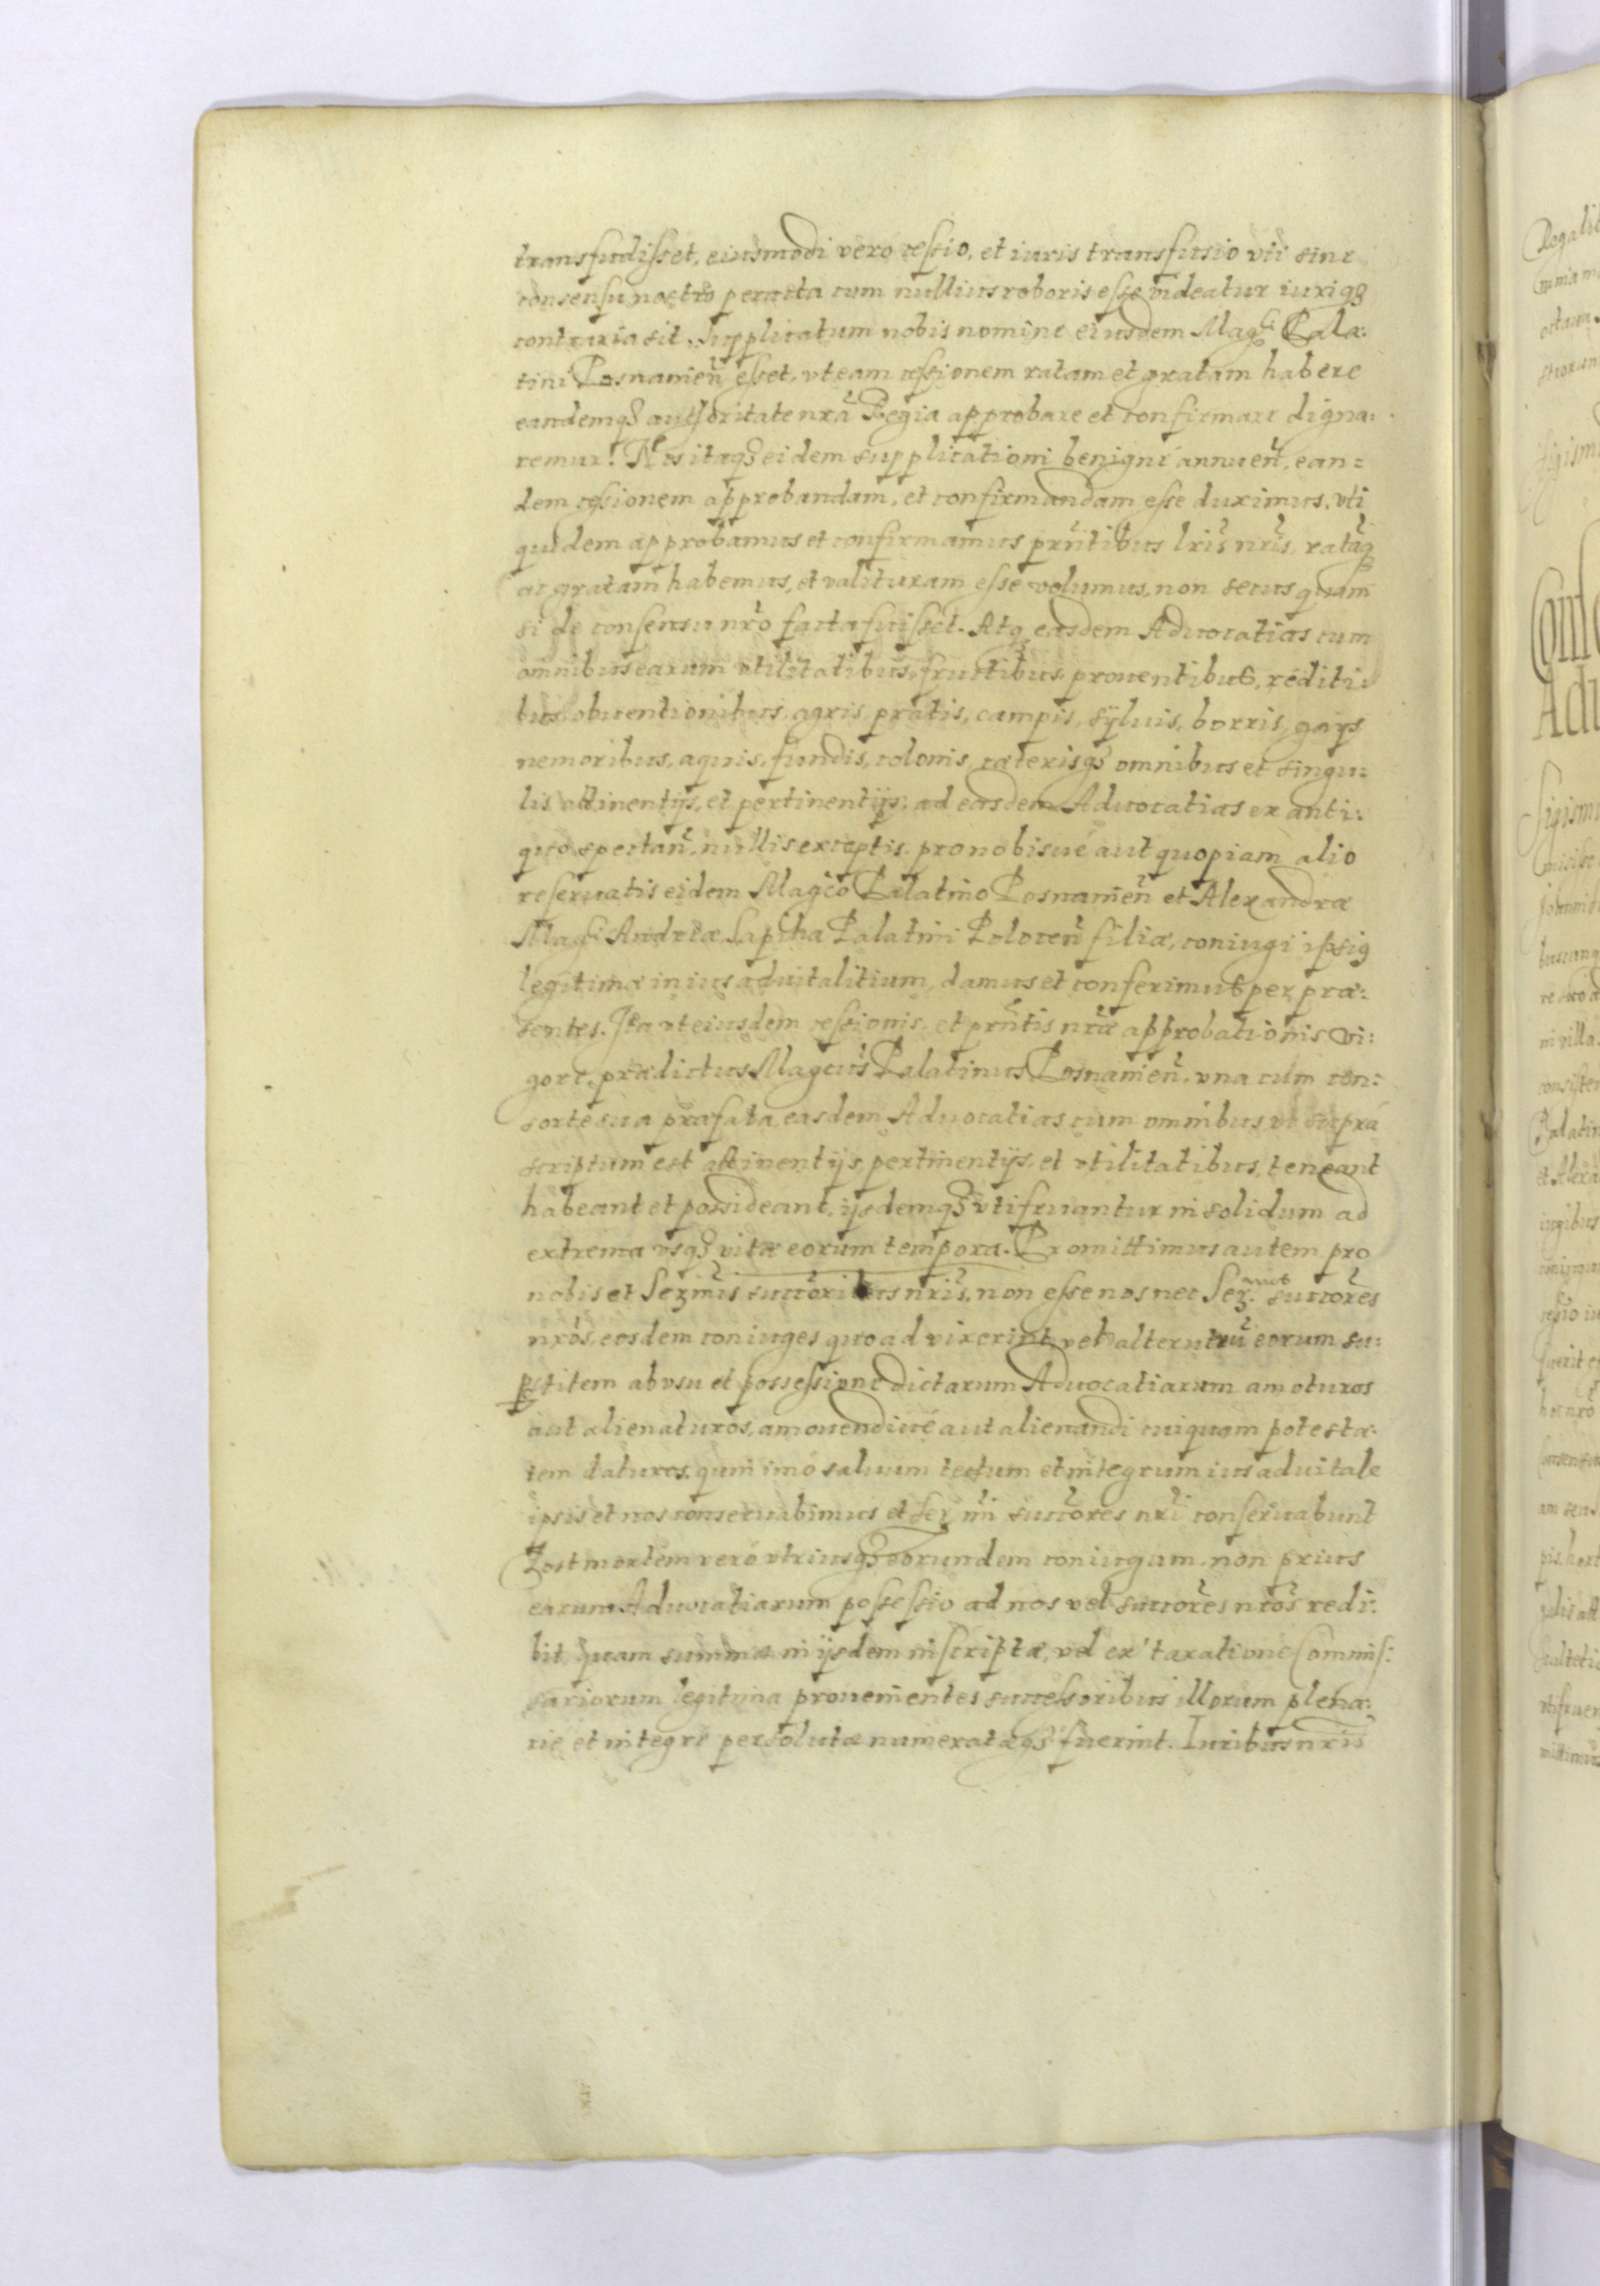 transfudisset, eiusmodi vero cessio, et iuris transfusio vti sine
consensu nostro peracta cum nullius roboris esse videatur iuriq3
contraria sit. Supplicatum nobis nomine eiusdem Mag̃ci Pala:
tini Posnanien̄ esset, vt eam cessionem ratam et gratam habere
eandemq3 authoritate nr̃a Regia approbare et confirmare digna:
remur. Nos itaq3 eidem supplicationi benignè annuen̄, ean:
dem cessionem approbandam, et confirmandam esse duximus, vti
quidem approbamus et confirmamus prñtibus lr̃is nr̃is, ratãq3
ac gratam habemus, et valituram esse volumus, non secus quam
si de consensu nr̃o facta fuisset. Atq3 easdem Aduocatias cum
omnibus earum vtilitatibus, fructibus, prouentibus, rediti:
bus, obuentionibus, agris, pratis, campis, syluis, borris, gays
nemoribus, aquis, fundis, colonis, cæterisq3 omnibus et singu:
lis attinentijs, et pertinentijs, ad easdem Aduocatias ex anti:
quo spectan̄, nullis exceptis, pro nobisuè aut quopiam alio
reseruatis eidem Mag̃co Palatino Posnanien̄ et Alexandræ
Mag̃ci Andreæ Sapieha Palatini Polocen̄ filiæ, coniugi ipsiq
legitimæ in ius aduitalitium, damus et conferimus per præ:
sentes. Ita vt eiusdem cessionis, et prñtis nr̃æ approbationis vi:
gore, prædictus Mag̃cus Palatinus Posnanien̄, vna cum con:
sorte sua præfata easdem Aduocatias cum omnibus vt supra
scriptum est attinentijs pertinentijs, et vtilitatibus, teneant
habeant et possideant, ijsdemq3 vtifruantur in solidum ad
extrema vsq3 vitæ eorum tempora. Promittimus autem pro
nobis et Serm̃is succoribus nr̃is, non esse nos nec Ser.mos succores
nr̃os, eosdem coniuges quoad vixerint, vel alterutrũ eorum su:
pstitem ab vsu et possessione dictarum Aduocatiarum amoturos
aut alienaturos, amouendiuè aut alienandi cuiquam potesta:
tem daturos, quin imo saluum tectum et integrum ius aduitale
ipsis et nos conseruabimus et Serm̃i succores nr̃i conseruabunt
Post mortem verò vtriusq3 eorundem coniugum, non prius
earum Aduocatiarum possessio ad nos vel succores nr̃os redi:
bit quam summæ in ijsdem inscriptæ, vel ex taxatione Commis:
sariorum legitima prouenientes successoribus illorum plena:
rie et integrè persolutæ numeratæq3 fuerint. Iuribus nr̃is